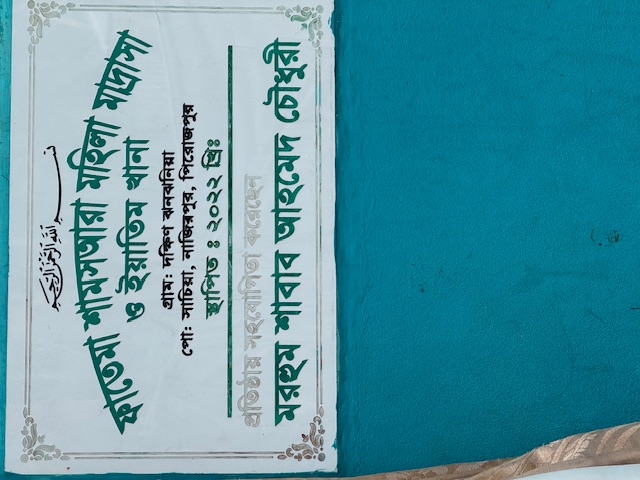 بسم الله الرحمن الرحيم
ফাতেমা শামসআরা মহিলা মাদ্রাসা
ও ইয়াতিম খানা
গ্রাম: দক্ষিণ ঝনঝনিয়া
পো: সাচিয়া, নাজিরপুর, পিরোজপুর
স্থাপিত : ২০২২ খ্রিঃ
প্রতিষ্ঠায় সহযোগিতা করেছেন
মরহুম শাবাব আহমেদ চৌধুরী